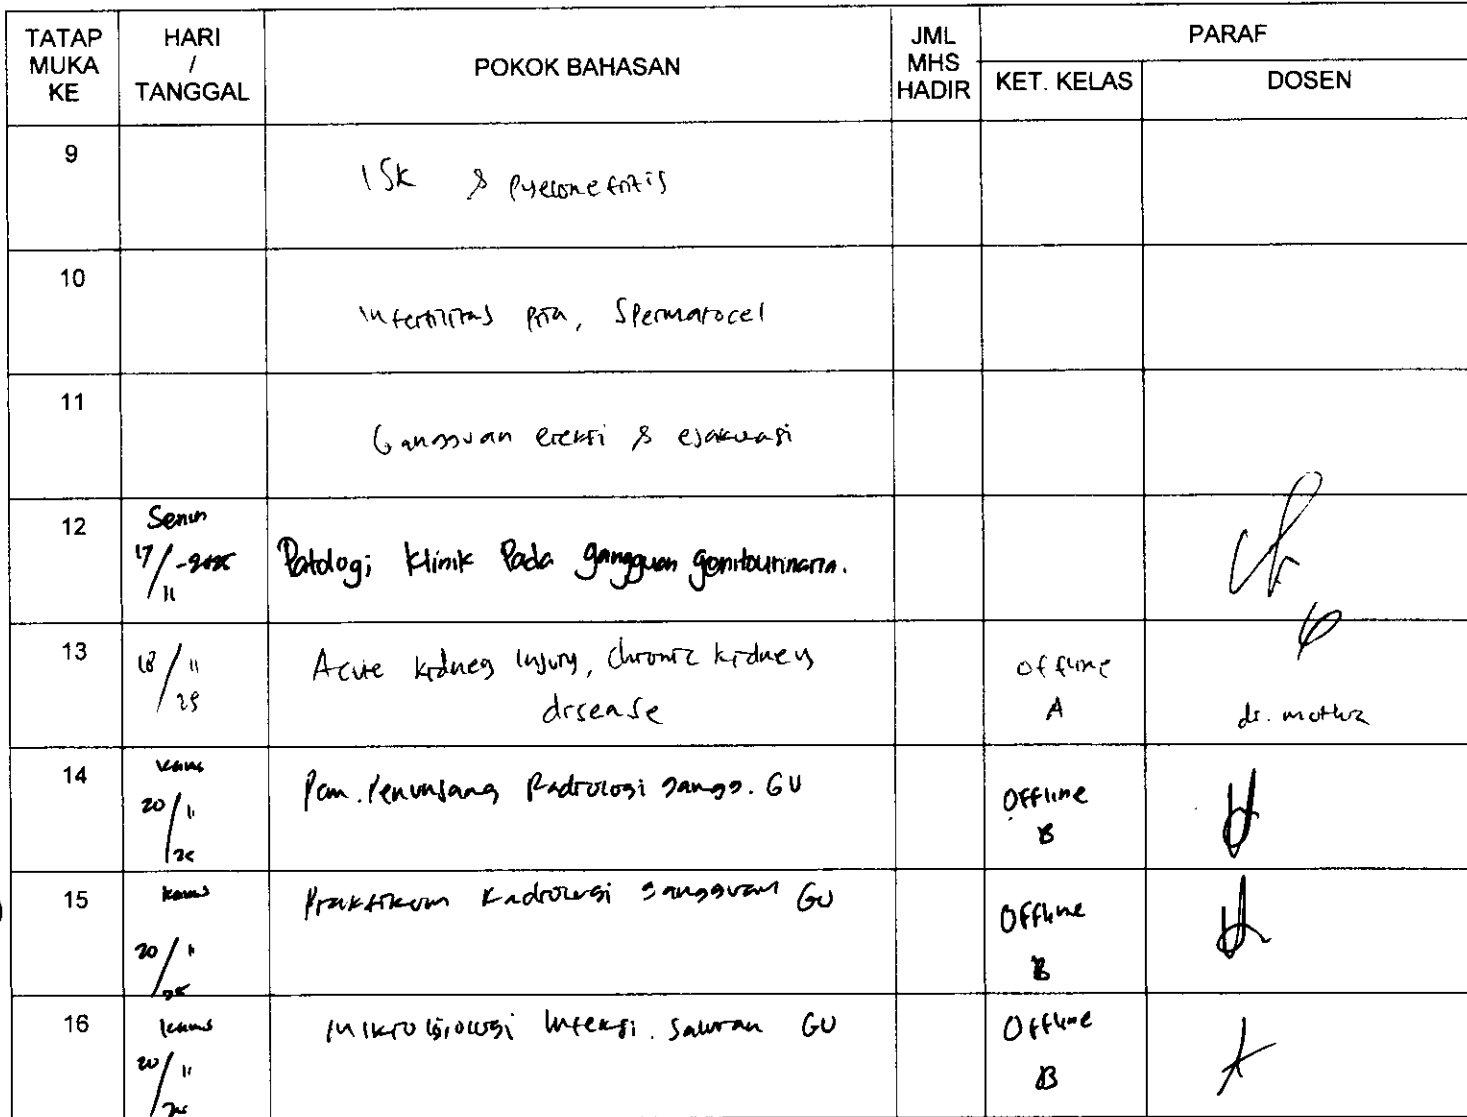 TATAP MUKA KE
HARI / TANGGAL
POKOK BAHASAN
JML MHS HADIR
PARAF
KET. KELAS
DOSEN
9
ISK & Pyelonefritis
10
Infertilitas pria, Spermatocel
11
Gangguan ereksi & ejakulasi
12
Senin
17/11-2025
Patologi Klinik Pada gangguan genitourinaria.
13
18/11
25
Acute kidney Injury, chronic kidney
disease
offline
A
14
Kamis
20/11
25
Pem. Penunjang Radiologi gangg. GU
Offline
B
15
Kamis
20/11
25
Praktikum Radiologi gangguan GU
Offline
B
16
Kamis
20/11
25
Mikrobiologi Infeksi. Saluran GU
Offline
B